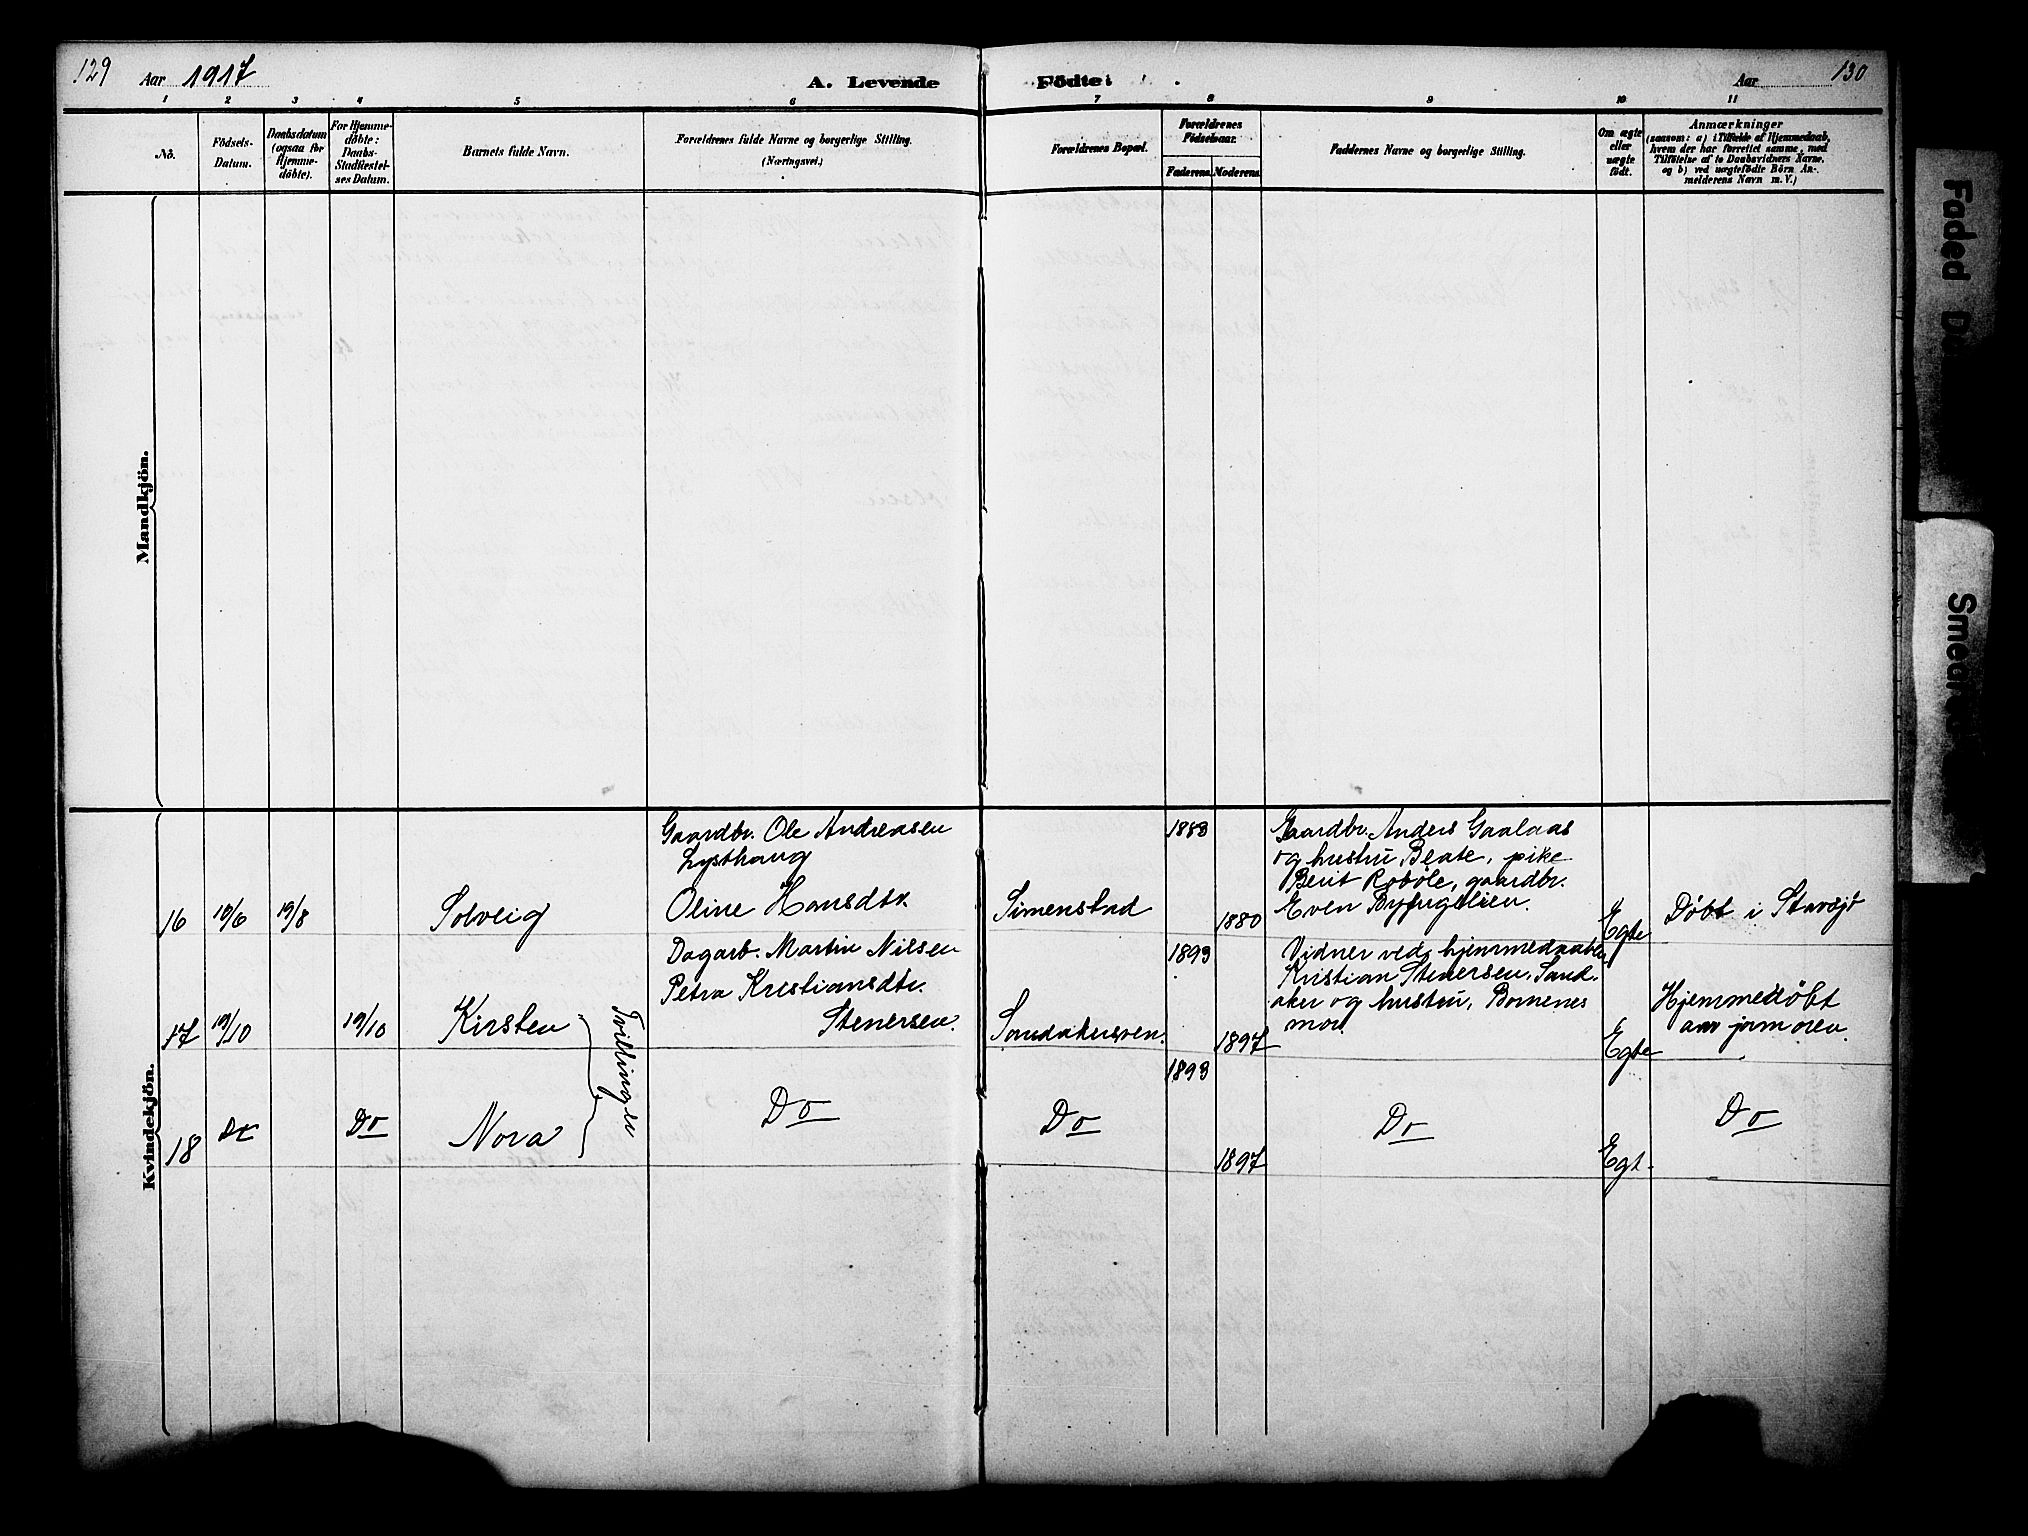 129
Aar 1917
A. Levende
Födte:
Aar
130
1
2
3
4
5
6
7
8
9
10
11
Nö.
Födsels-
Datum.
Daabsdatum
(ogsaa for
Hjemme-
döbte).
For Hjemme-
döbte:
Daabs-
Stadfæstel-
ses Datum.
Barnets fulde Navn.
Forældrenes fulde Navne og borgerlige Stilling.
(Næringsvei.)
Forældrenes Bopæl.
Forældrenes
Födselsaar.
Faderens.
Moderens.
Faddernes Navne og borgerlige Stilling.
Om ægte
eller
uægte
födt.
Anmærkninger
(saasom: a) i Tilfælde af Hjemmedaab,
hvem der har forrettet samme, med
Tilföielse af to Daabsvidners Navne,
og b) ved uægtefödte Börn An-
melderens Navn m. V.)
Mandkjön.
Kvindekjön.
16
19/6
19/8
Solveig
Gaardbr. Ole Andreasen
Lysthaug
Oline Hansdtr.
Simenstad
1883
1880
Gaardbr. Anders Gaalaas
og hustru Beate, pike
Berit Robøle, gaardbr.
Even Byfuglien.
Egte
Døbt i Stavsjø
17
19/10
19/10
Kirsten
Tvillinger
Dagarb. Martin Nilsen
Petra Kristiansdtr.
Stenersen.
Sandakersven.
1893
1897
Vidner ved hjemmedaaben
Kristian Stenersen, Sand-
aker og hustru, Barnenes
mor.
Egte
Hjemmedøbt
av jormoren.
18
Do
Do
Nora
Do
Do
1893
1897
Do
Egt.
Do
Faded